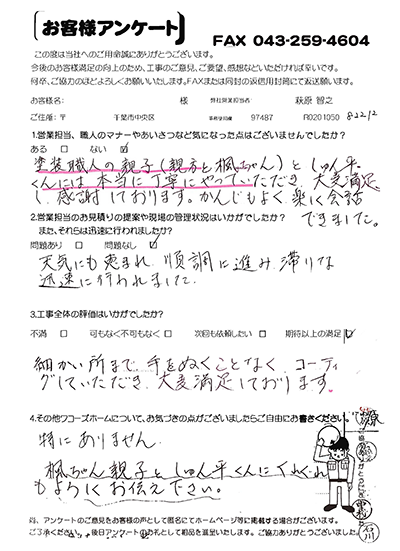 お客様アンケート
FAX 043-259-4604
この度は当社へのご用命誠にありがとうございます。
今後のお客様満足の向上のため、工事のご意見、ご要望、感想などいただければ幸いです。
何卒、ご協力のほどよろしくお願いいたします。FAXまたは同封の返信用封筒にて返送願います。
お客様名: 様 弊社営業担当者: 萩原 智之
ご住所: 〒 千葉市中央区 97487 R0201050 82212
1.営業担当、職人のマナーやあいさつなど気になった点はございませんでしたか?
ある □ ない ☑
塗装職人の親子(親方と楓ちゃん)としゅん平
くんには本当に丁寧にやっていただき、大変満足
し、感謝しております。かんじもよく、楽しく会話
できました。
2.営業担当のお見積りの提案や現場の管理状況はいかがでしたか?
また、それらは迅速に行われましたか?
問題あり □ 問題なし ☑
天気にも恵まれ、順調に進み、滞りな
迅速に行われました。
3.工事全体の評価はいかがでしたか?
不満 □ 可もなく不可もなく □ 次回も依頼したい □ 期待以上の満足 ☑
細かい所まで、手をぬくことなく、コーティ
グしていただき、大変満足しております。
4.その他ワコーズホームについて、お気づきの点がございましたらご自由にお書きください。
特にありません。
楓ちゃん親子としゅん平くんにくれぐれ
もよろしくお伝え下さい。
石川
尚、アンケートのご意見をお客様の声として匿名にてホームページ等に掲載する場合がございます。
ご了承ください。後日アンケートのお礼として粗品を進呈いたします。ご協力ありがとうございました。